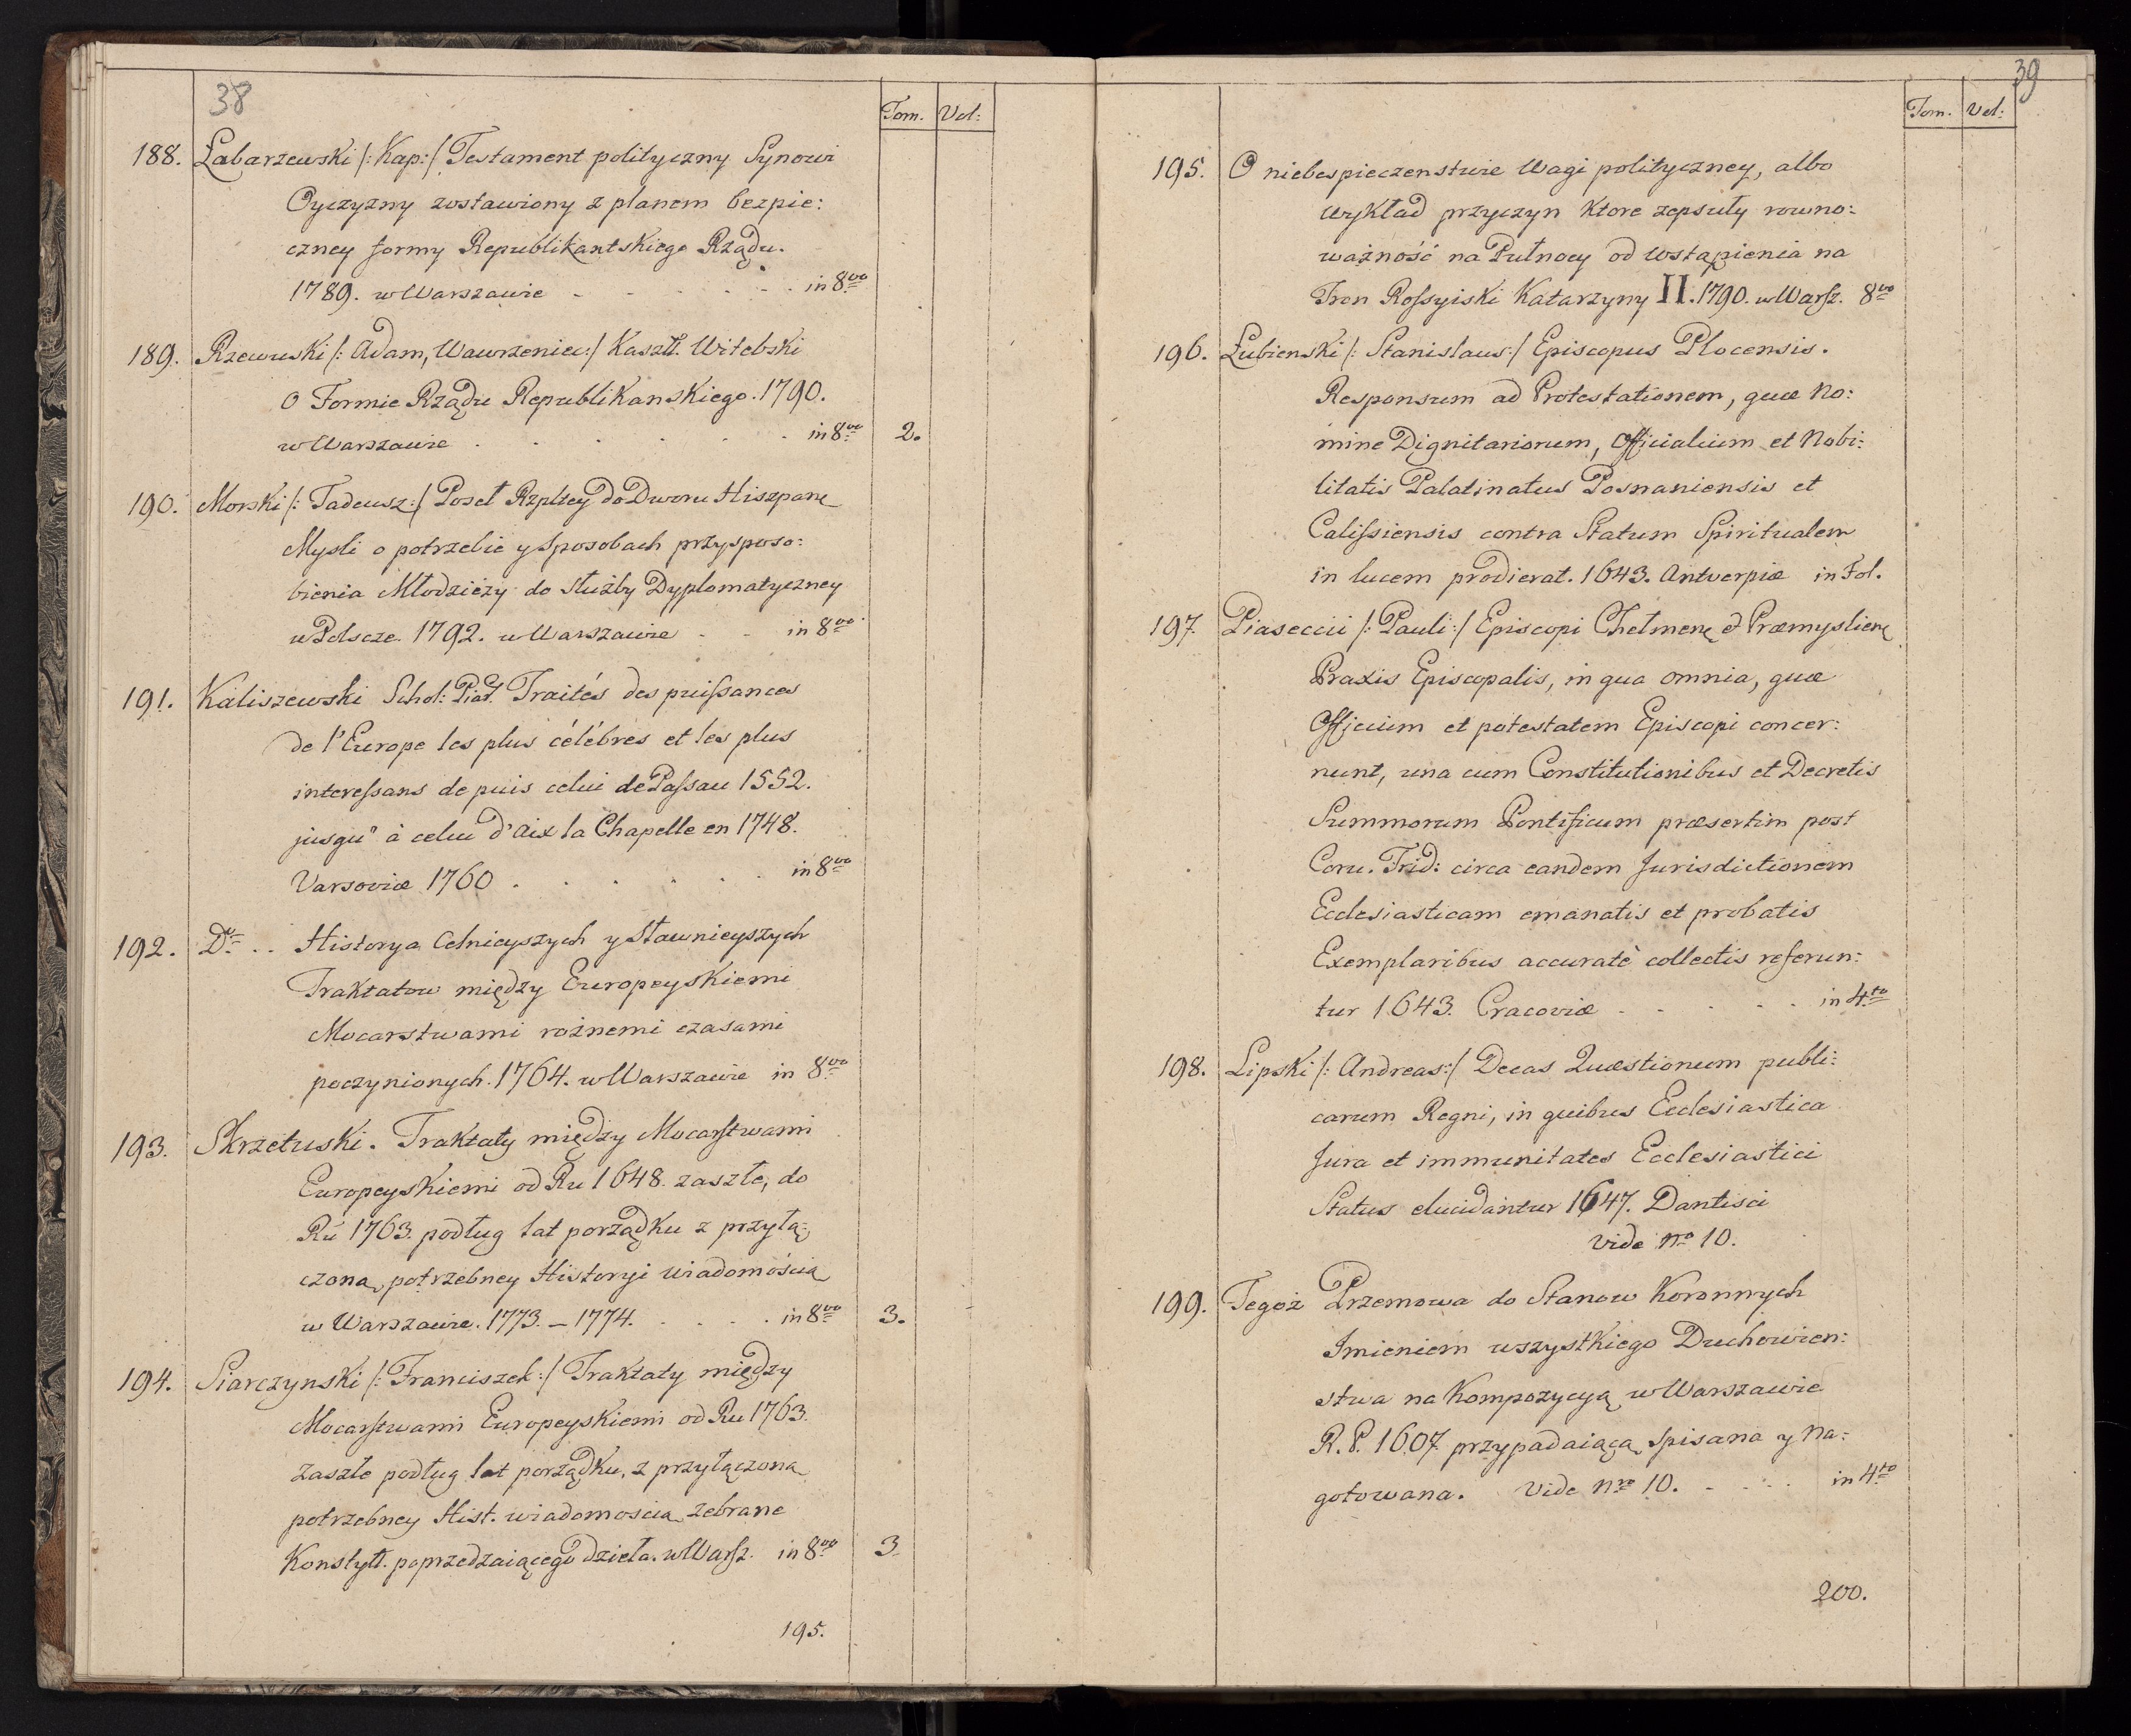 38
Tom. Vol:
188. Łabarzewski /: Kap:/ Testament polityczny Synowi
Oyczyzny zostawiony z planem bezpie:
czney formy Republikantskiego Rządu.
1789. w Warszawie - - - - - - in 8vo
189. Rzewuski /: Adam, Wawrzeniec:/ Kasztl. Witebski
O Formie Rządu Republikanskiego. 1790.
w Warszawie . . . . . . in 8vo 2.
190. Morski /: Tadeusz:/ Poseł Rzpltey do Dworu Hiszpang
Mysli o potrzebie y Sposobach przysposo:
bienia Młodzieży do służby Dyplomatyczney
w Polscze. 1792. w Warszawie - - in 8vo
191. Kaliszewski Schol: Piar. Traités des puissances
de l'Europe les plus célébres et les plus
interessans depuis celui de Passau 1552.
jusqu'' à celui d'Aix la Chapelle en 1748.
Varsoviæ 1760 . . . . . . in 8vo
192. Do .. Historya Celnieyszych y sławnieyszych
Traktatow między Europeyskiemi
Mocarstwami rożnemi czasami
poczynionych. 1764. w Warszawie in 8vo
193. Skrzetuski. Traktaty między Mocarstwami
Europeyskiemi od Ru 1648. zaszłe, do
Ru 1763. podług lat porządku z przyłą:
czoną potrzebney Historyi wiadomością
w Warszawie. 1773. – 1774. . . . . in 8vo 3.
194. Siarczynski /: Franciszek:/ Traktaty między
Mocarstwami Europeyskiemi od Ru 1763.
zaszłe podług lat porządku, z przyłączoną
potrzebney Hist. wiadomoscią zebrane
Konstytt. poprzedzaiącego dzieła. w Warsz. in 8vo 3
195.
39
Tom. Vol:
195. O niebespieczenstwie Wagi polityczney, albo
wykład przyczyn ktore zepsuły rowno:
ważność na Pułnocy od wstąpienia na
Tron Rossyiski Katarzyny II. 1790. w Warsz. 8vo
196. Łubienski /: Stanislaus:/ Episcopus Plocensis.
Responsum ad Protestationem, quæ No:
mine Dignitariorum, Officialium et Nobi:
litatis Palatinatus Posnaniensis et
Calissiensis contra Statum Spiritualem
in lucem prodierat. 1643. Antverpiæ in Fol.
197. Piaseccii /: Pauli:/ Episcopi Chelmeng et Præmyslieng
Praxis Episcopalis, in qua omnia, quæ
Officium et potestatem Episcopi concer:
nunt, una cum Constitutionibus et Decretis
Summorum Pontificum præsertim post
Trid: circa eandem Jurisdictionem
Ecclesiasticam emanatis et probatis
Exemplaribus accuratè collectis referun:
tur 1643. Cracoviæ . - . - - . in 4to
198. Lipski /: Andreas:/ Decas Quæstionum publi:
carum Regni, in quibus Ecclesiastica
Jura et immunitates Ecclesiastici
Status elucidantur 1647. Dantisci
Vide No 10.
199. Tegoż Przemowa do Stanow Koronnych
Imieniem wszystkiego Duchowien:
stwa na Kompozycyą w Warszawie
R. P. 1607. przypadaiącą spisana y Na:
gotowana. Vide Nro 10. - . - . . in 4to
200.